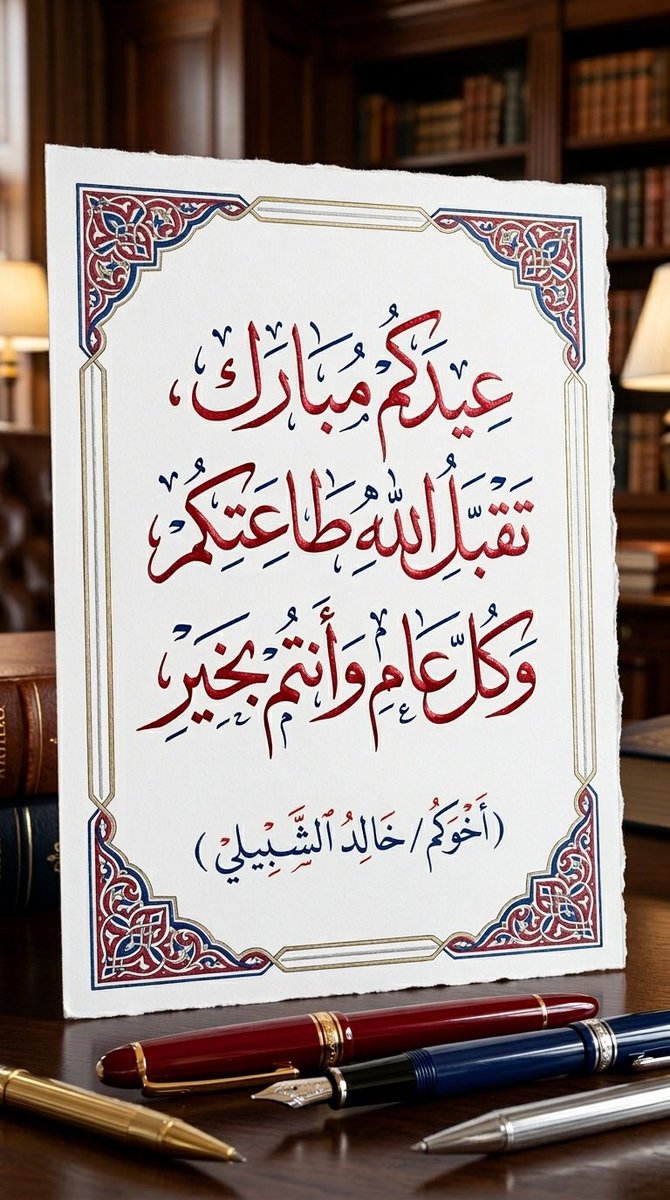 عِيدَكُمْ مُبَارَك،
تَقَبَّلَ اللهُ طَاعَتِكُمْ
وَكُلّ عَامِ وَأَنتُمْ بِخَيرِ
(أَخْوَكُمْ/ خَالِدُ الشَّبِيلي)